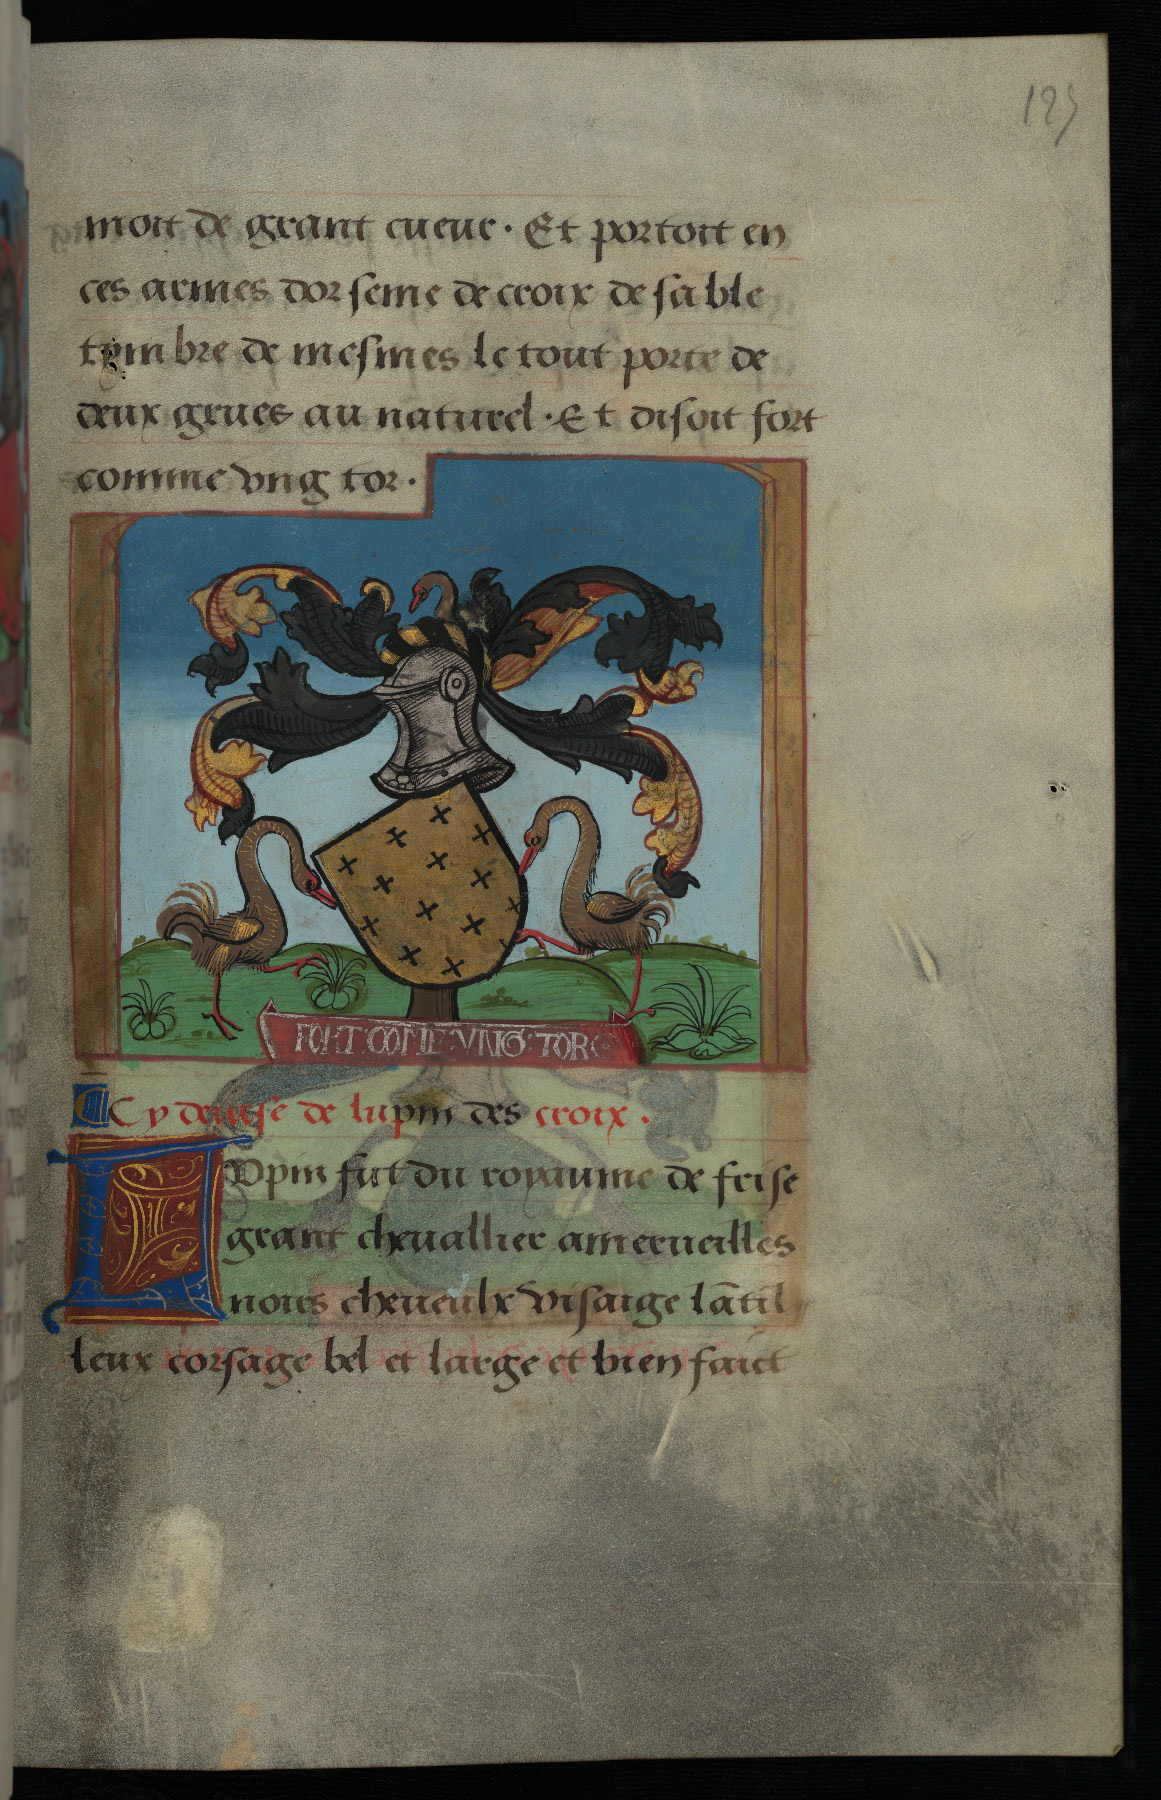 125
moit de grant cueur · Et portoit en
ces armes dor seme de croix de sable
tymbre de mesmes le tout porte de
deux grues au naturel · Et disoit fort
comme vng tor ·
FORT COME VNG TOR
Cy deuise de lupin des croix .
LVpin fut du royaume de frise
grant cheuallier amerueilles
noirs cheueulx visaige lãtil
leux corsage bel et large et bien faict